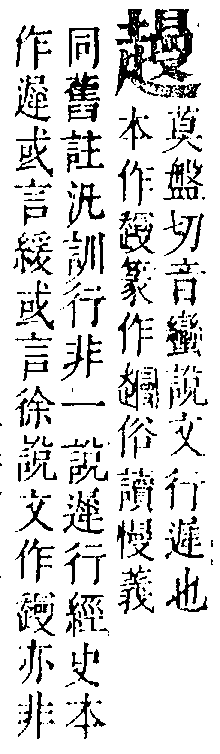 𧽼
莫盤切音蠻說文行遲也
本作篆作俗讀慢義
同舊註汎訓行非一說遲行經史本
作遲或言緩或言徐說文作亦非